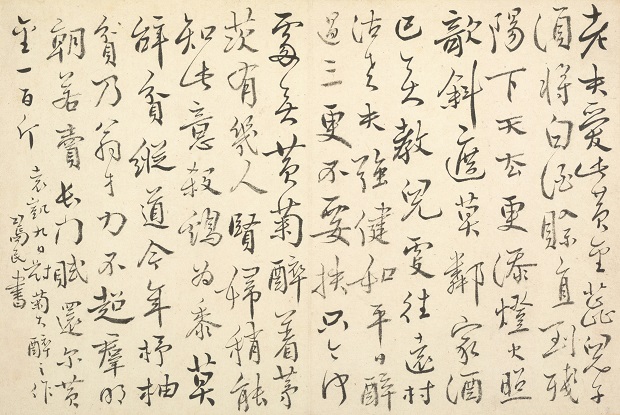 老夫愛此黃金蕊兒子
須將白酒賒直到殘
陽下天去更添燈火照
欹斜遮莫鄰家酒
已無教兒更往遠村
沽老夫強健如平日醉
過三更不要扶只今何
處無黃菊醉著茅
茨有幾人賢婦稍能
知此意殺雞為黍莫
辭貧縱道今年杼柚
貧乃翁才力不超群明
朝若賣長門賦還爾黃
金一百斤
袁凱九日對菊大醉之作
書